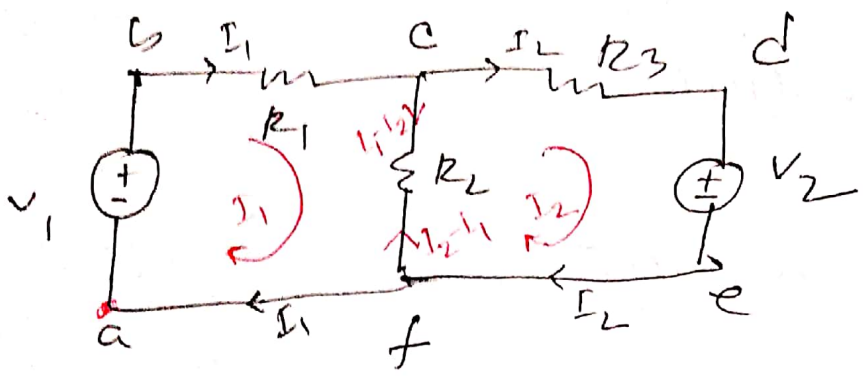 b I₁ c I₂ R₃ d
R₁ I₁-I₂
V₁ + - I₁ R₂ I₂ + - V₂
I₂-I₁
a I₁ f I₂ e